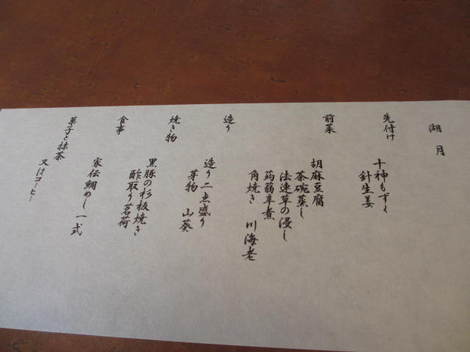 湖月
先付け
十神もずく
針生姜
前菜
胡麻豆腐
茶碗蒸し
法連草の浸し
蒟蒻旨煮
角焼き 川海老
造り
造り二点盛り
芽物 山葵
焼き物
黒豚の杉板焼き
酢取り茗荷
食事
家伝鯛めし一式
菓子と抹茶
又はコーヒー